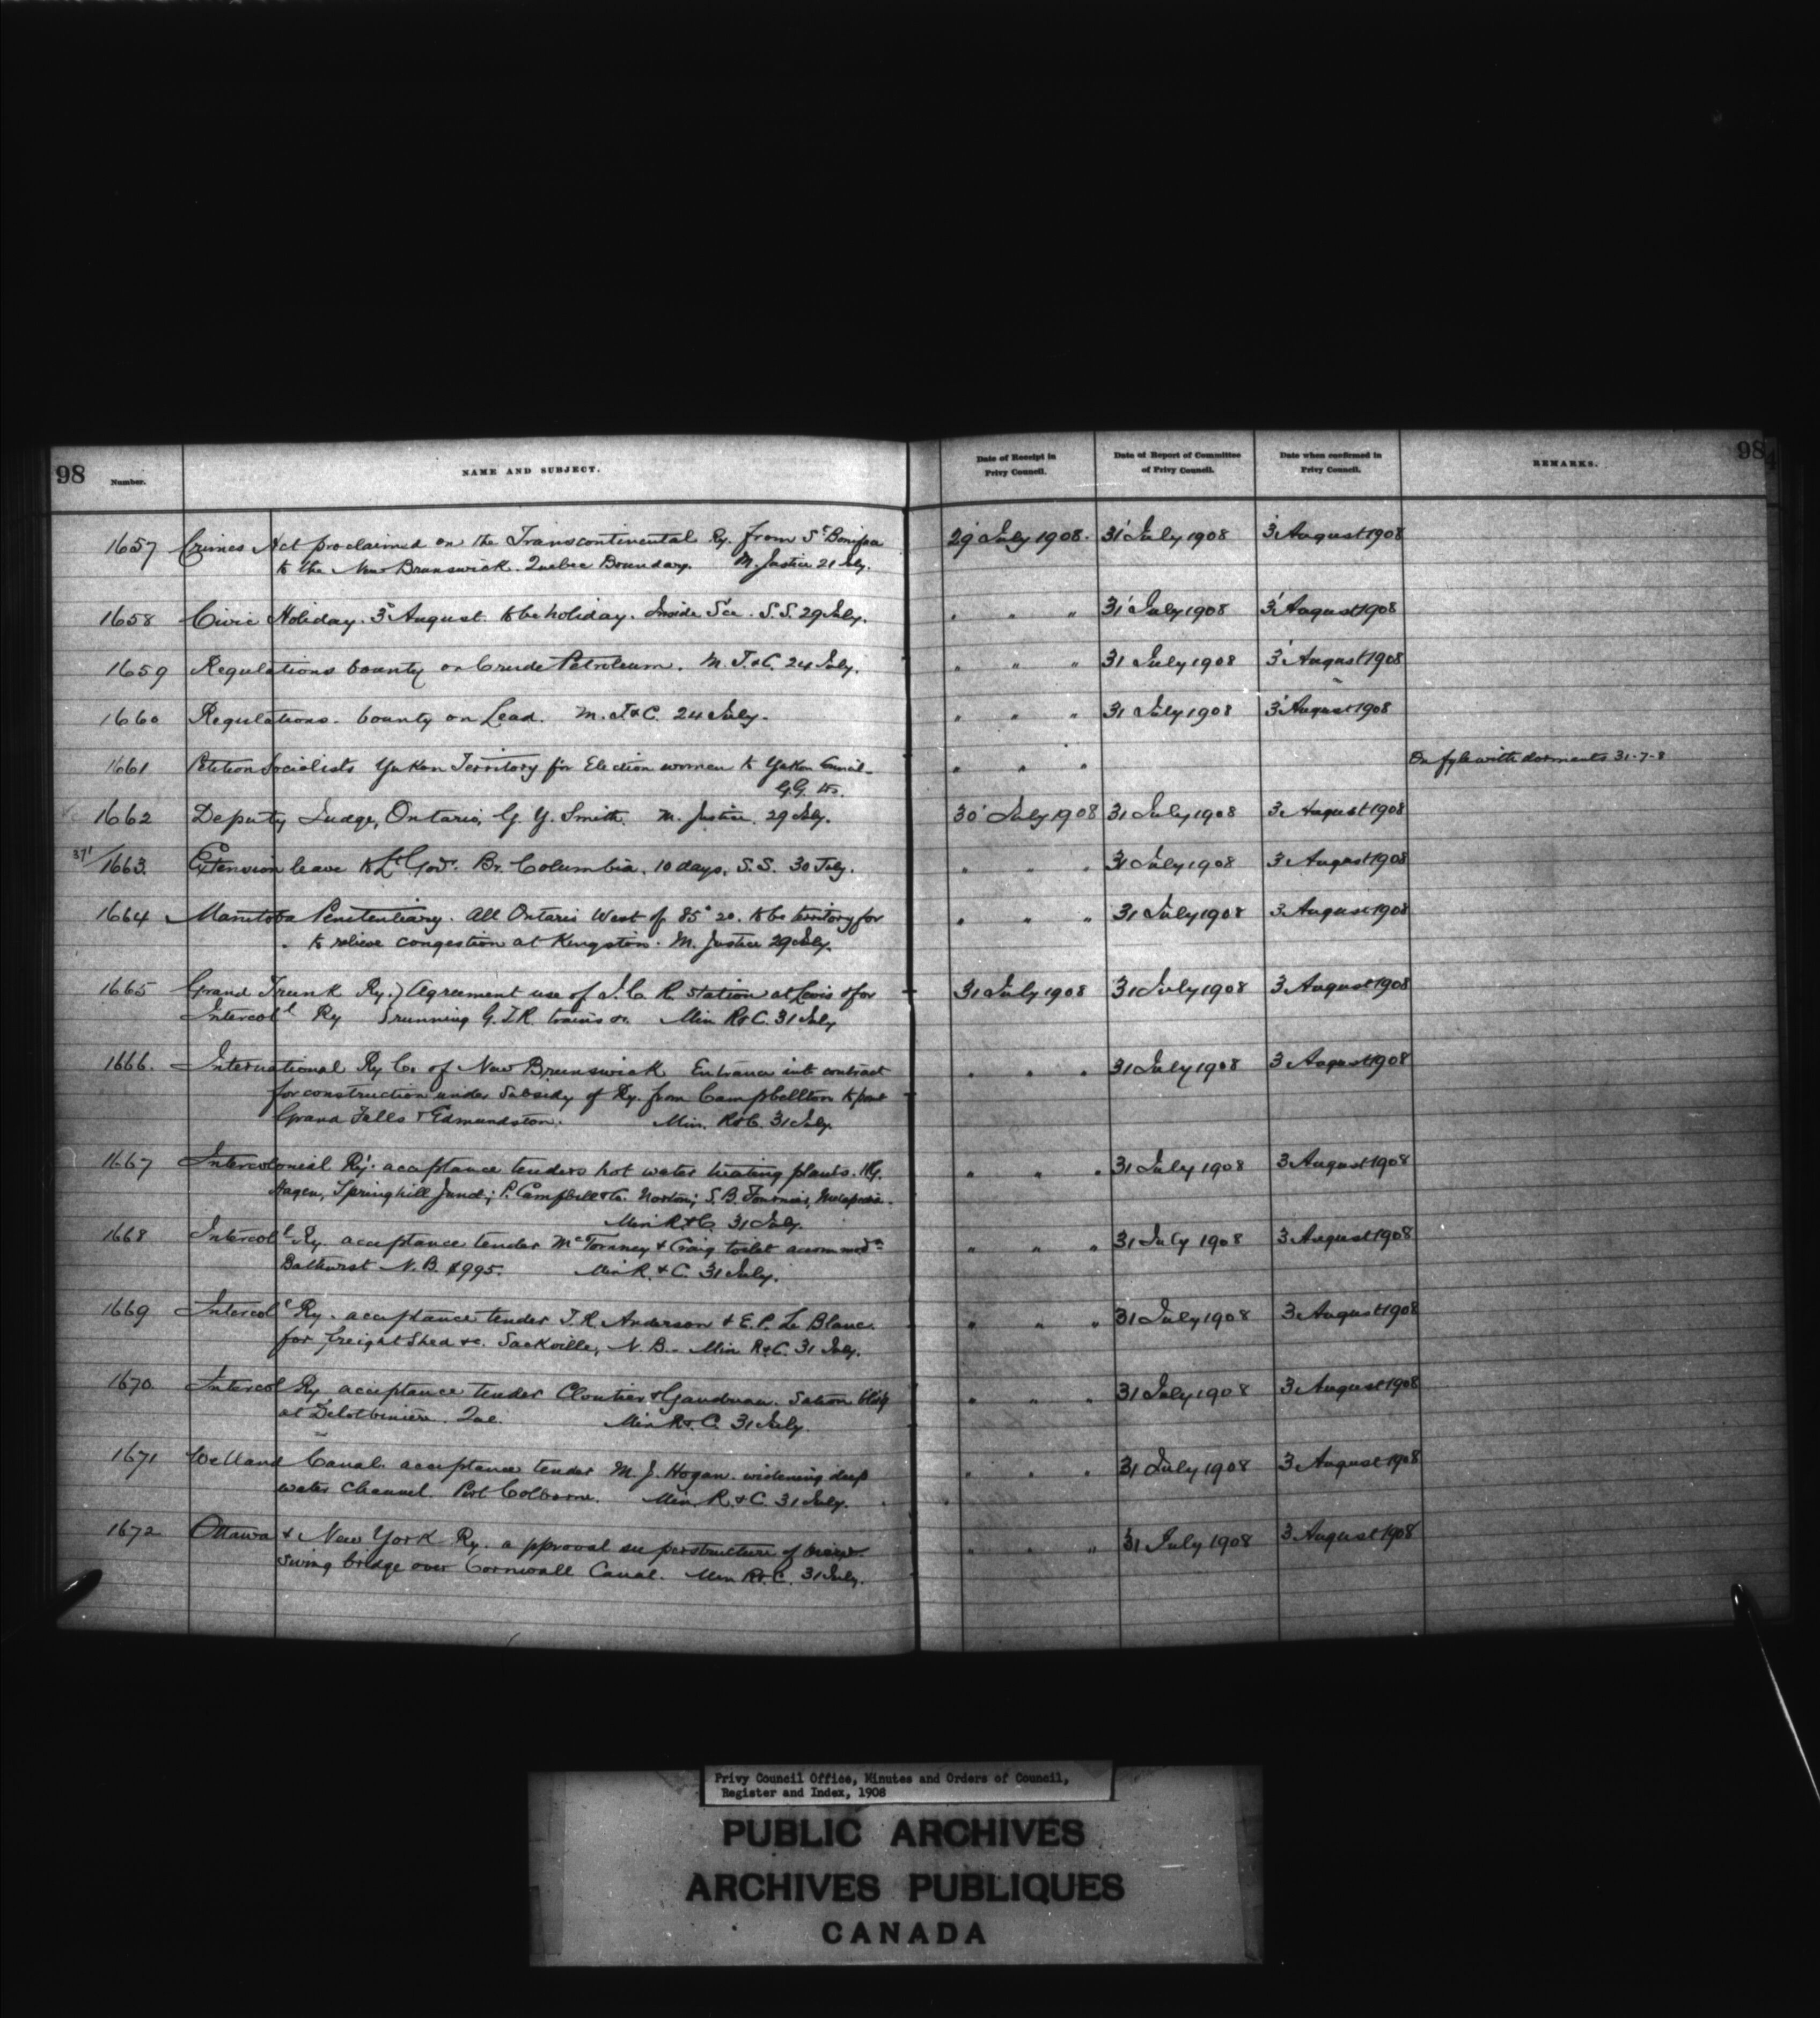 98
Number.
NAME AND SUBJECT.
Date of Receipt in
Privy Council.
Date of Report of Committee
of Privy Council.
Date when confirmed in
Privy Council.
REMARKS.
98
1657 Crimes Act proclaimed on the Transcontinental Ry. from St Bonifa 29 July 1908. 31 July 1908 3 August 1908
to the New Brunswick. Quebec Boundary. M. Justice 21 July.
1658 Civic Holiday. 3d August. to be holiday. Inside Sce. S.S. 29 July. " " " 31 July 1908 3 August 1908
1659 Regulations bounty on Crude Petroleum. M. T. & C. 24 July. " " " 31 July 1908 3 August 1908
1660 Regulations. bounty on Lead. M. T & C. 24 July. " " " 31 July 1908 3 August 1908
1661 Petition Socialists Yukon Territory for Election women to Yukon Council. " " " On fyle with dormants 31-7-8
G.G.
1662 Deputy Judge, Ontario, G. Y. Smith. M. Justice. 29 July. 30 July 1908 31 July 1908 3 August 1908
1663 Extension leave to Lt Govr. Br. Columbia. 10 days. S.S. 30 July. " " " 31 July 1908 3 August 1908
1664 Manitoba Penitentiary. All Ontario West of 85° 20. to be territory for " " " 31 July 1908 3 August 1908
to relieve congestion at Kingston. M. Justice 29 July.
1665 Grand Trunk Ry. } Agreement use of I. C. R. station at Levis & for 31 July 1908 31 July 1908 3 August 1908
Intercoll Ry } running G.T.R. trains &c. Min R & C. 31 July
1666. International Ry Co. of New Brunswick Entrance into contract " " " 31 July 1908 3 August 1908
for construction under Subsidy of Ry. from Campbellton to point
Grand Falls & Edmundston. Min. R & C. 31 July.
1667 Intercolonial Ry. acceptance tenders hot water heating plants. " " " 31 July 1908 3 August 1908
Hagen, Springhill Junct; P. Campbell & Co. Norton; S. B. Fournier,
Min R. & C. 31 July.
1668 Intercoll Ry. acceptance tender & Craig toilet accommodn " " " 31 July 1908 3 August 1908
Bathurst N.B. $995. Min R. & C. 31 July.
1669 Intercoll Ry. acceptance tender T. R. Anderson & E. P. Le Blanc. " " " 31 July 1908 3 August 1908
for freight Shed &c. Sackville, N. B. Min R & C. 31 July.
1670. Intercol Ry acceptance tender Cloutier & . Sation bldg " " " 31 July 1908 3 August 1908
at . Que. Min R & C. 31 July.
1671 Welland Canal. acceptance tender M. J. Hogan. widening deep " " " 31 July 1908 3 August 1908
water Channel. Port Colborne. Min R. & C. 31 July.
1672 Ottawa & New York Ry. approval superstructure of " " " 31 July 1908 3 August 1908
swing bridge over Cornwall Canal. Min R & C. 31 July.
Privy Council Office, Minutes and Orders of Council,
Register and Index, 1908
PUBLIC ARCHIVES
ARCHIVES PUBLIQUES
CANADA